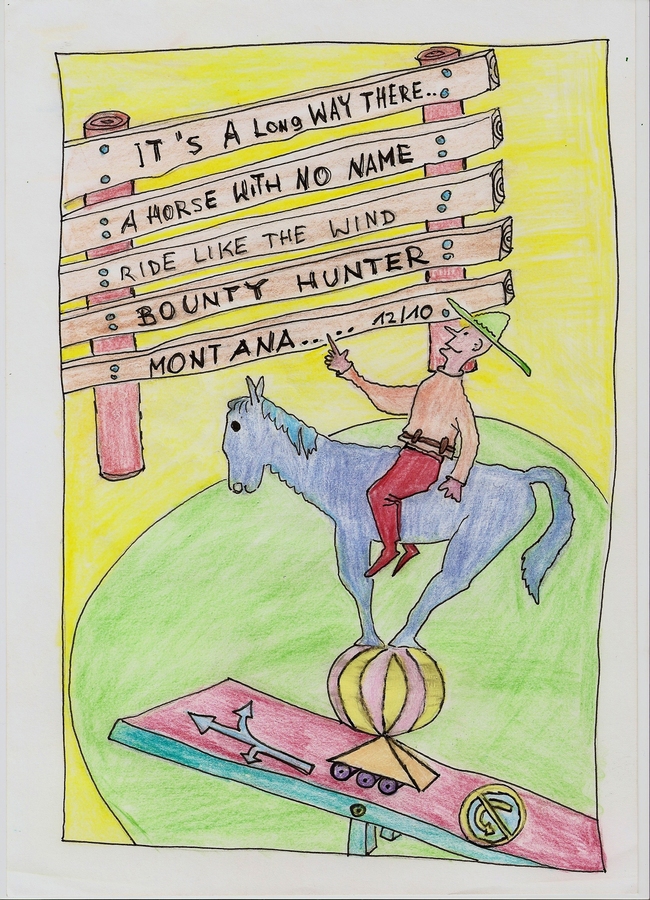 IT'S A LONg WAY THERE..
A HORSE WITH NO NAME
RIDE LIKE THE WIND
BOUNTY HUNTER
MONTANA..... 12/10